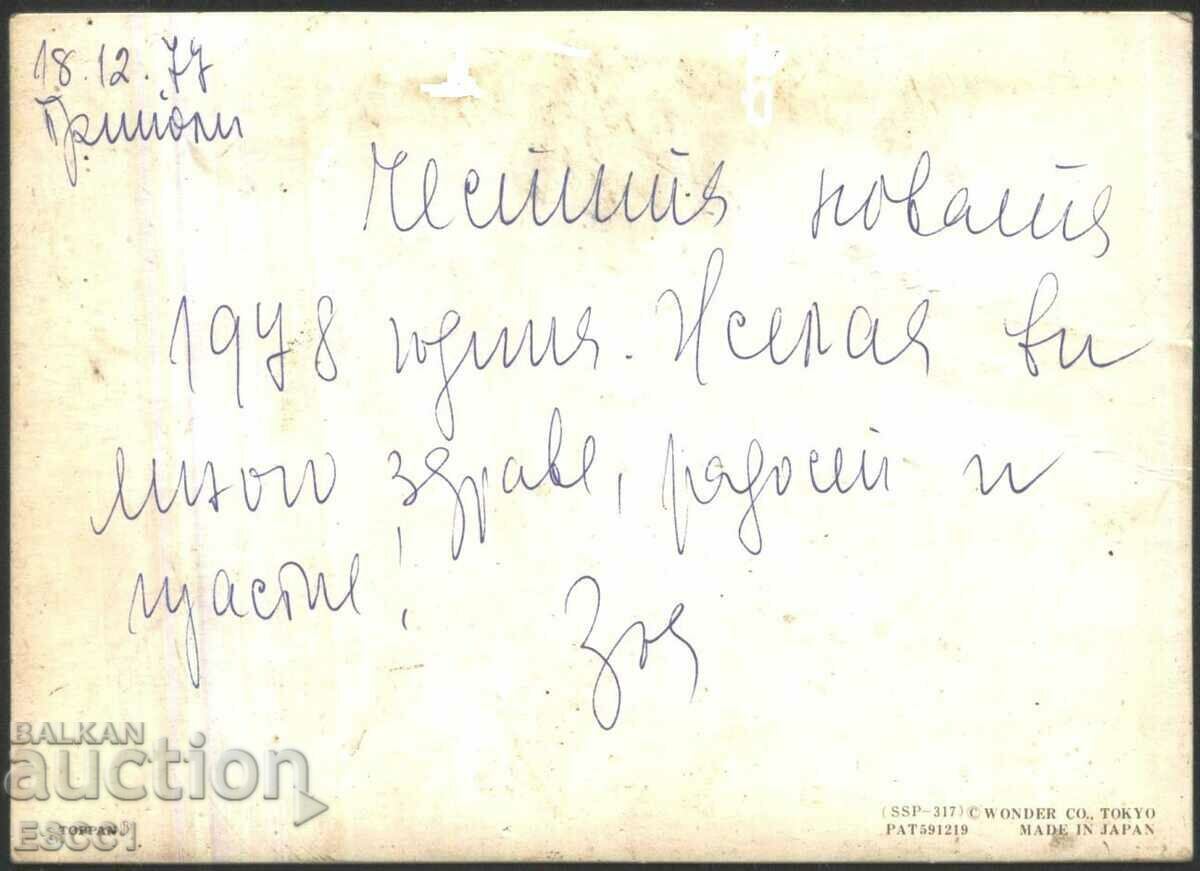 18.12.77
Триполи
Честита новата
1978 година. Желая ви
много здраве, радост и
щастие!
Зоя
BALKAN
auction
TOPPAN
E8CC1
(SSP-317) © WONDER CO., TOKYO
PAT591219 MADE IN JAPAN